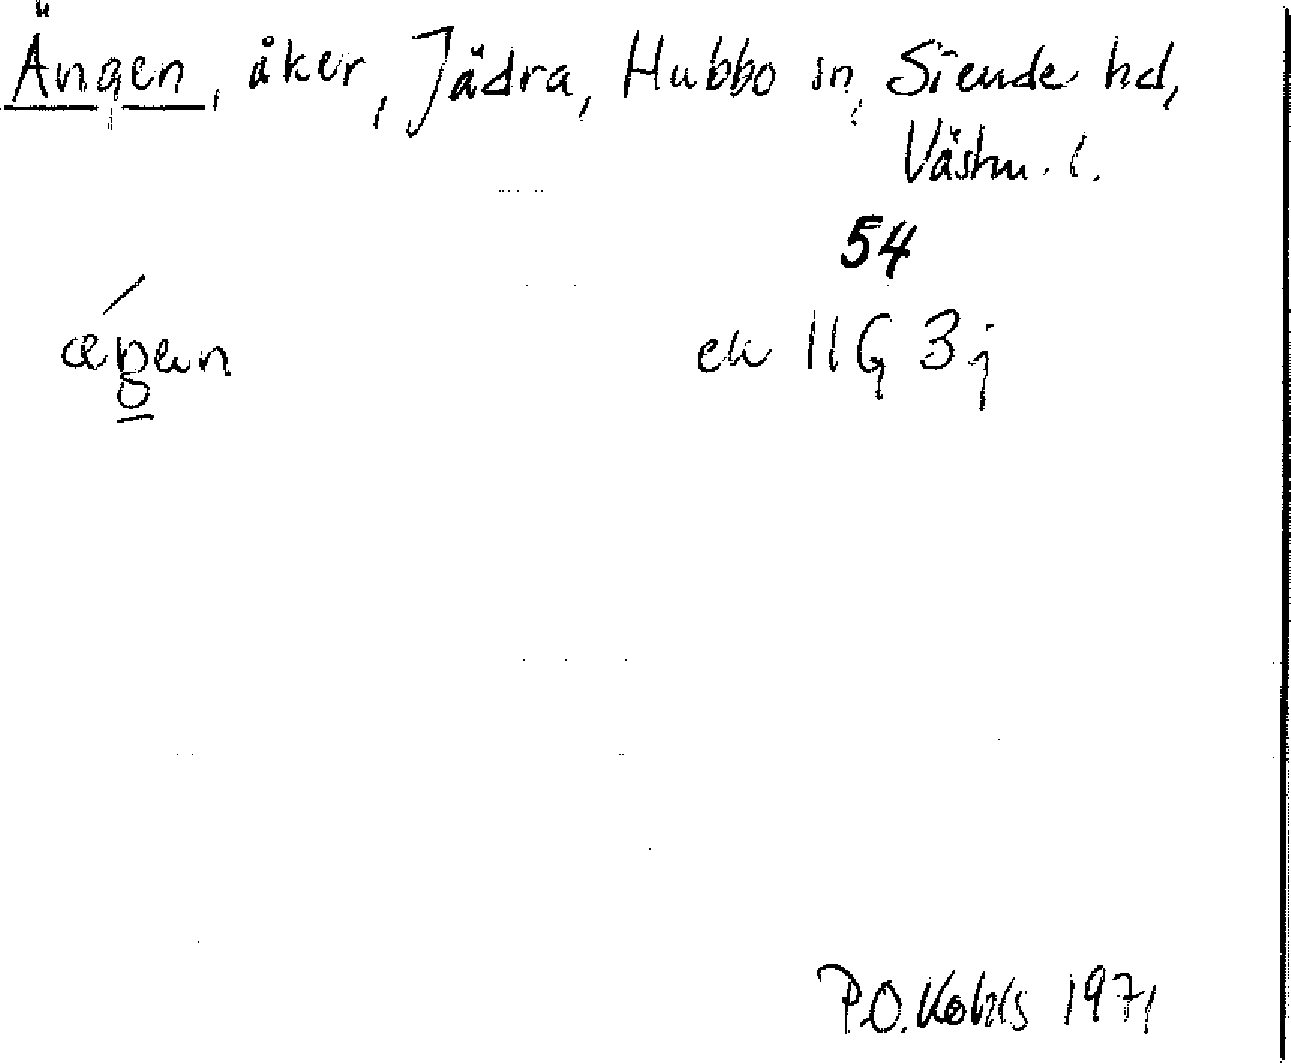 Ängen, åker, Jädra, Hubbo sn, Siende hd,
Västm. l.
54
ek 11G 3j
P.O. 1971